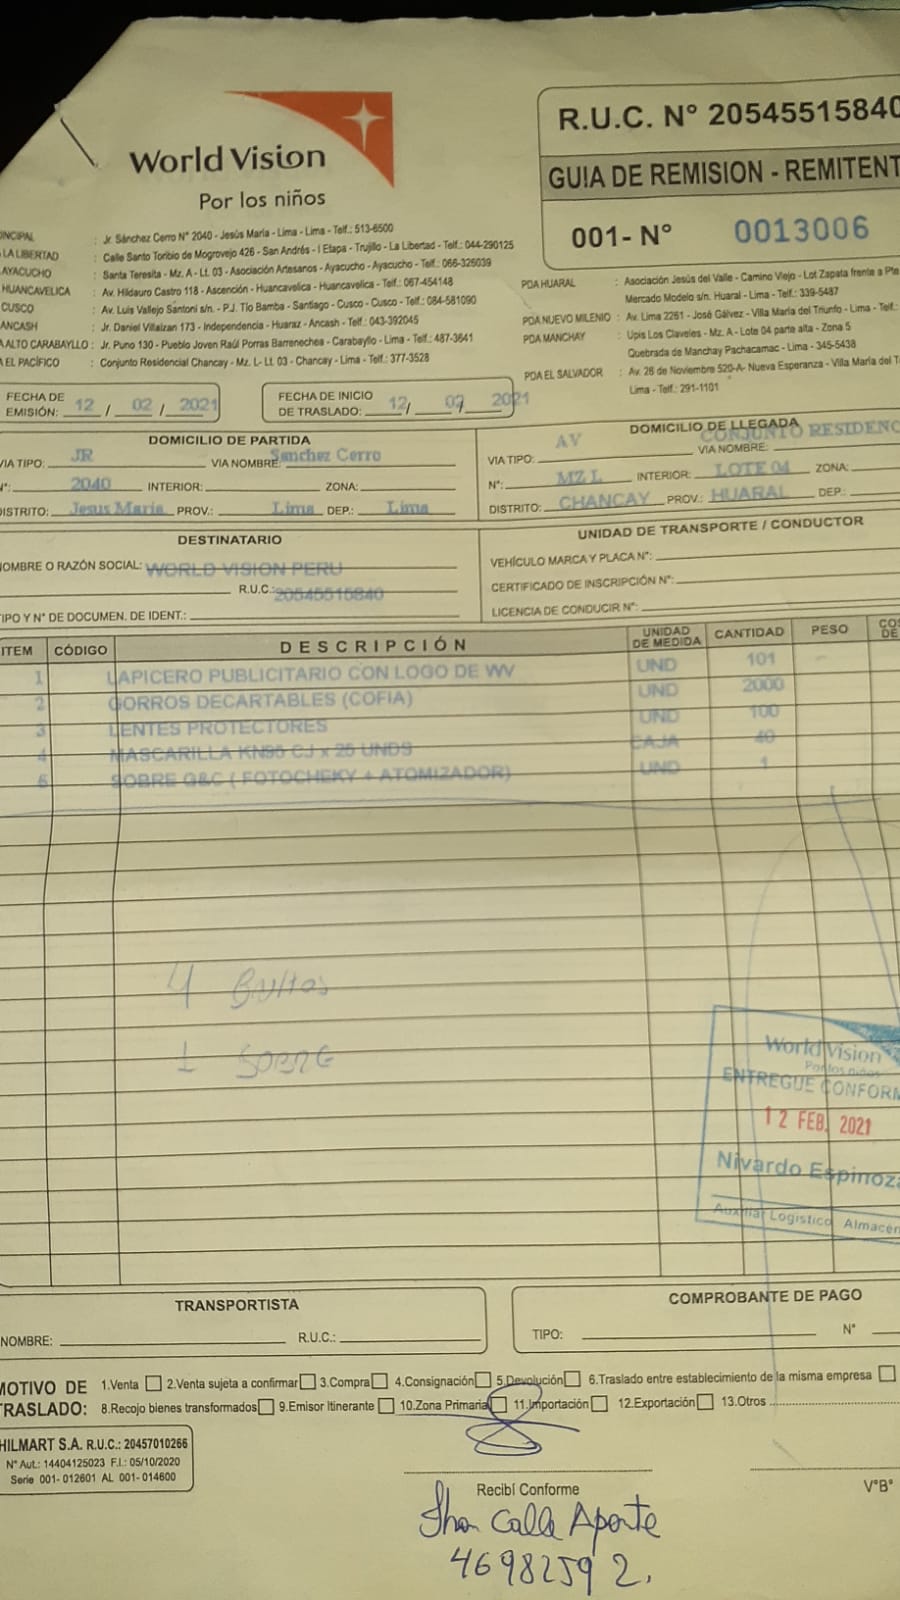 World Vision
Por los niños
R.U.C. N° 20545515840
GUIA DE REMISION - REMITENT
001- N° 0013006
NCIPAL : Jr. Sánchez Cerro N° 2040 - Jesús María - Lima - Lima - Telf.: 513-6500
LA LIBERTAD : Calle Santo Toribio de Mogrovejo 426 - San Andrés - I Etapa - Trujillo - La Libertad - Telf.: 044-290125
AYACUCHO : Santa Teresita - Mz. A - Lt. 03 - Asociación Artesanos - Ayacucho - Ayacucho - Telf.: 066-326039
HUANCAVELICA : Av. Hildauro Castro 118 - Ascención - Huancavelica - Huancavelica - Telf.: 067-454148
CUSCO : Av. Luis Vallejo Santoni s/n. - P.J. Tío Bamba - Santiago - Cusco - Cusco - Telf.: 084-581090
ANCASH : Jr. Daniel Villaizan 173 - Independencia - Huaraz - Ancash - Telf.: 043-392045
A ALTO CARABAYLLO : Jr. Puno 130 - Pueblo Joven Raúl Porras Barrenechea - Carabayllo - Lima - Telf.: 487-3641
A EL PACÍFICO : Conjunto Residencial Chancay - Mz. L- Lt. 03 - Chancay - Lima - Telf.: 377-3528
PDA HUARAL : Asociación Jesús del Valle - Camino Viejo - Lot Zapata frente a Pla
Mercado Modelo s/n. Huaral - Lima - Telf.: 339-5487
PDA NUEVO MILENIO : Av. Lima 2261 - José Gálvez - Villa María del Triunfo - Lima - Telf.:
PDA MANCHAY : Upis Los Claveles - Mz. A - Lote 04 parte alta - Zona 5
Quebrada de Manchay Pachacamac - Lima - 345-5438
PDA EL SALVADOR : Av. 26 de Noviembre 520-A- Nueva Esperanza - Villa María del T
Lima - Telf.: 291-1101
FECHA DE EMISIÓN: 12 / 02 / 2021
FECHA DE INICIO DE TRASLADO: 12/ 02 / 2021
DOMICILIO DE PARTIDA
VIA TIPO: JR VIA NOMBRE: Sanchez Cerro
N°: 2040 INTERIOR: ZONA:
DISTRITO: Jesus Maria PROV.: Lima DEP.: Lima
DOMICILIO DE LLEGADA
VIA TIPO: AV VIA NOMBRE: CONJUNTO RESIDENC
N°: MZ L INTERIOR: LOTE 04 ZONA:
DISTRITO: CHANCAY PROV.: HUARAL DEP.:
DESTINATARIO
NOMBRE O RAZÓN SOCIAL: WORLD VISION PERU
R.U.C.: 20545515840
TIPO Y N° DE DOCUMEN. DE IDENT.:
UNIDAD DE TRANSPORTE / CONDUCTOR
VEHÍCULO MARCA Y PLACA N°:
CERTIFICADO DE INSCRIPCIÓN N°:
LICENCIA DE CONDUCIR N°:
ITEM CÓDIGO DESCRIPCIÓN UNIDAD DE MEDIDA CANTIDAD PESO COS DE
1 LAPICERO PUBLICITARIO CON LOGO DE WV UND 101
2 GORROS DECARTABLES (COFIA) UND 2000
3 LENTES PROTECTORES UND 100
4 MASCARILLA KN95 CJ x 25 UNDS CAJA 40
5 SOBRE G&C ( FOTOCHEKY + ATOMIZADOR) UND 1
4 Bultos
1 SOBRE
World Vision
Por los niños
ENTREGUE CONFORM
12 FEB. 2021
Nivardo Espinoza
Auxiliar Logistico Almacen
TRANSPORTISTA
NOMBRE: R.U.C.:
COMPROBANTE DE PAGO
TIPO: N°
MOTIVO DE TRASLADO:
1.Venta 2.Venta sujeta a confirmar 3.Compra 4.Consignación 5.Devolución 6.Traslado entre establecimiento de la misma empresa
8.Recojo bienes transformados 9.Emisor Itinerante 10.Zona Primaria 11.Importación 12.Exportación 13.Otros
HILMART S.A. R.U.C.: 20457010266
N° Aut.: 14404125023 F.I.: 05/10/2020
Serie 001- 012601 AL 001- 014600
Recibí Conforme
V°B°
Jhon Calle Aponte
46982592.